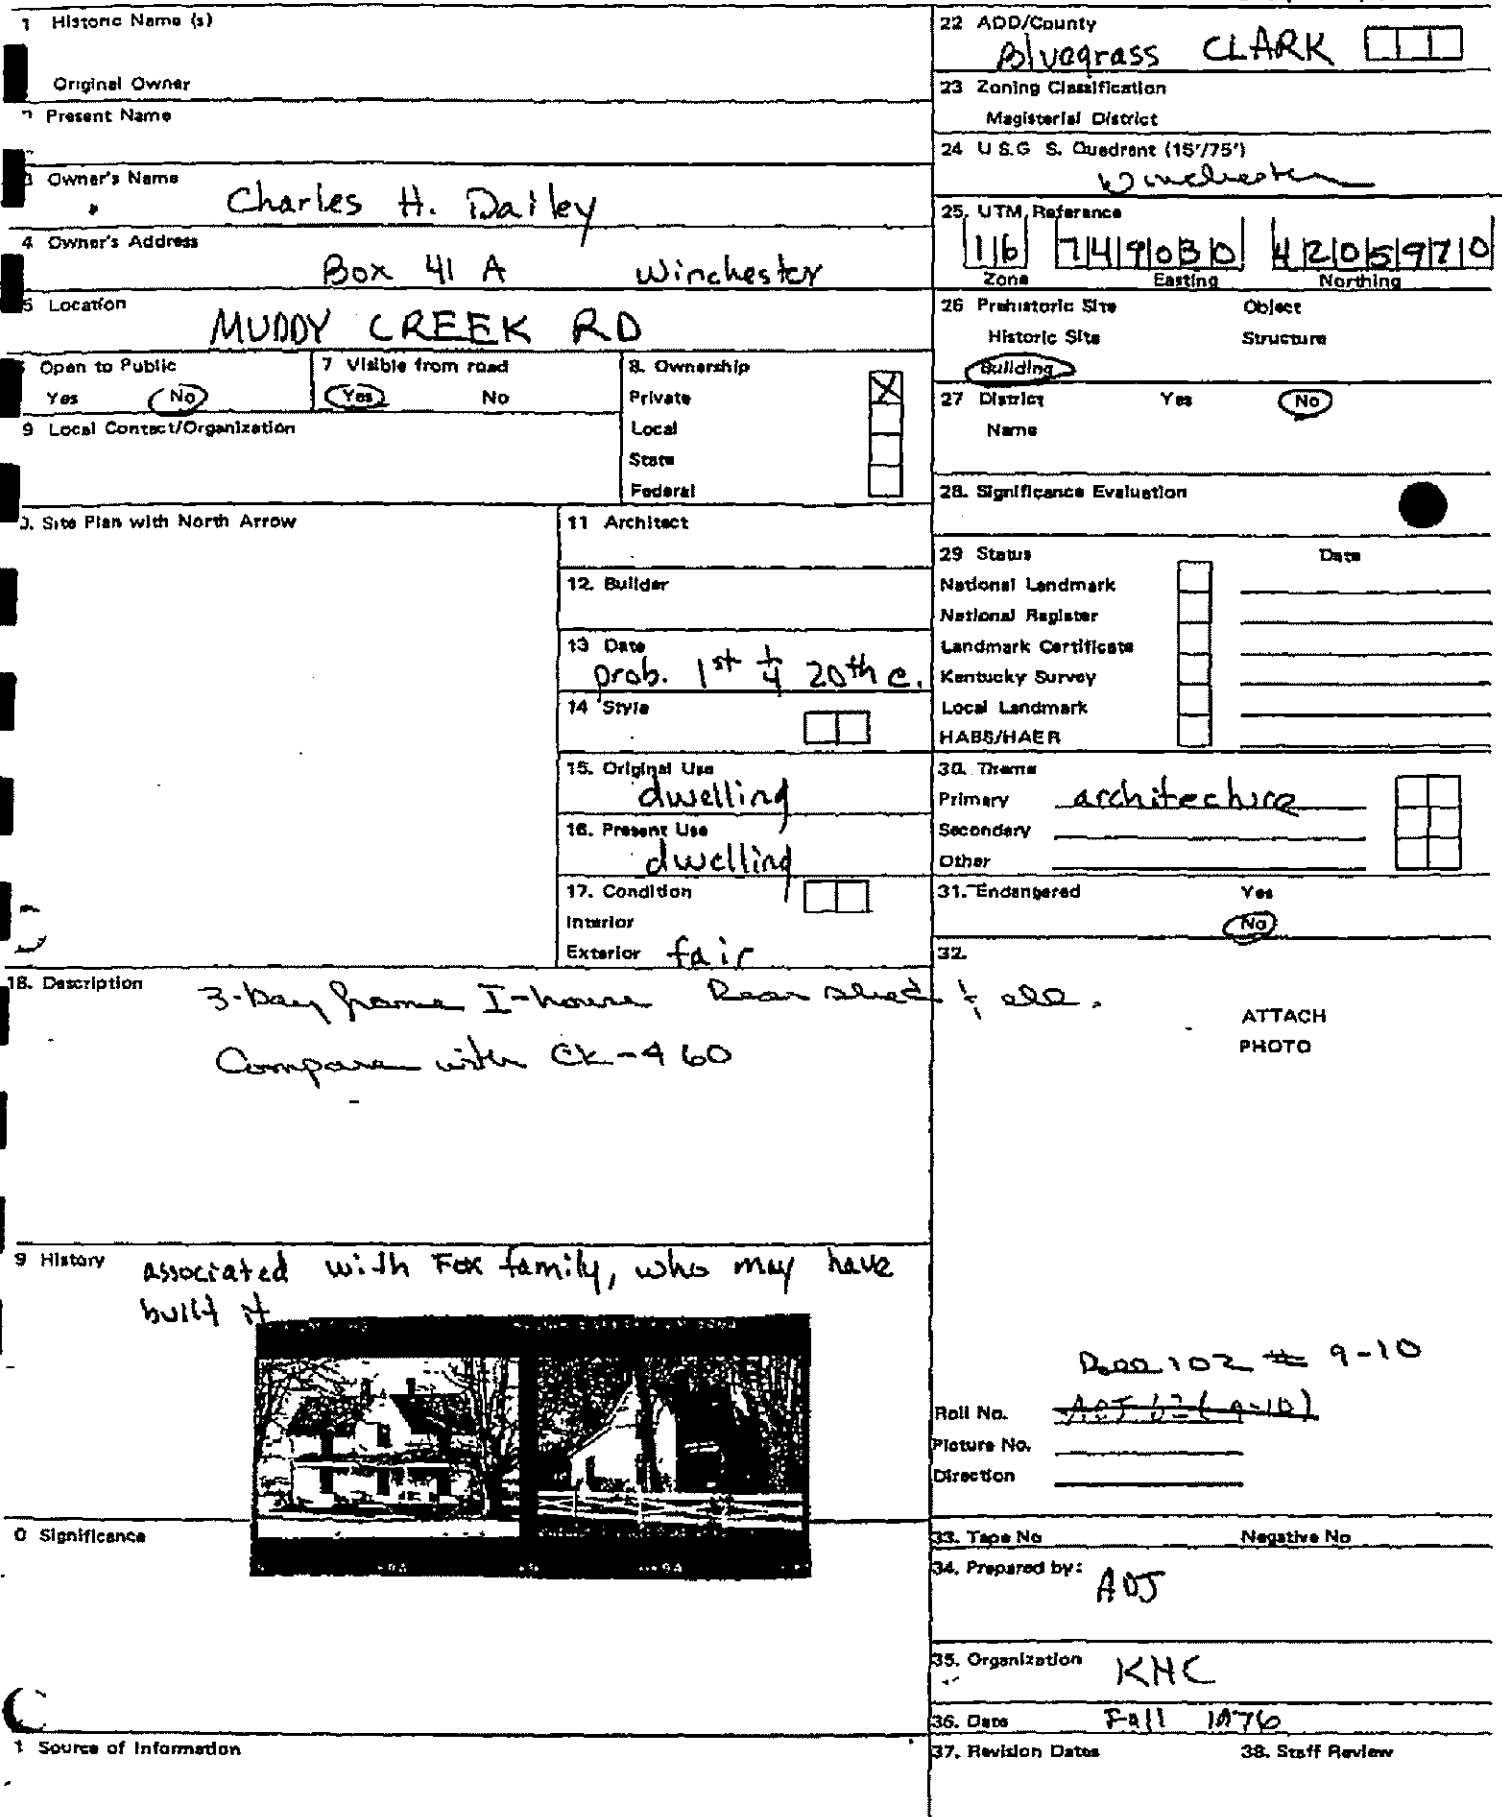 1 Historic Name (s)
Original Owner
Present Name
3 Owner's Name
Charles H. Dailey
4 Owner's Address
Box 41 A Winchester
5 Location
MUDDY CREEK RD
Open to Public
Yes No
7 Visible from road
Yes No
8. Ownership
Private X
Local
State
Federal
9 Local Contact/Organization
0. Site Plan with North Arrow
11 Architect
12. Builder
13 Date
prob. 1st 1/4 20th c.
14 Style
15. Original Use
dwelling
16. Present Use
dwelling
17. Condition
Interior
Exterior fair
18. Description
3-bay frame I-house Rear shed & ell.
Compare with CK-460
9 History
associated with Fox family, who may have
built it
0 Significance
1 Source of Information
22 ADD/County
Bluegrass CLARK
23 Zoning Classification
Magisterial District
24 U S.G S. Quadrant (15'/75')
Winchester
25. UTM Reference
16 749030 4205970
Zone Easting Northing
26 Prehistoric Site Object
Historic Site Structure
Building
27 District Yes No
Name
28. Significance Evaluation
29 Status Date
National Landmark
National Register
Landmark Certificate
Kentucky Survey
Local Landmark
HABS/HAER
30. Theme
Primary architecture
Secondary
Other
31. Endangered Yes
No
32.
ATTACH
PHOTO
102 # 9-10
Roll No. ADJ (9-10)
Picture No.
Direction
33. Tape No Negative No
34. Prepared by: ADJ
35. Organization KHC
36. Date Fall 1976
37. Revision Dates 38. Staff Review